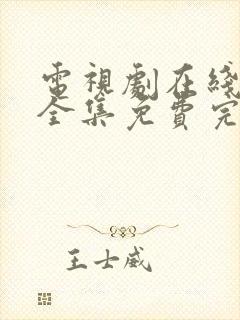 電視劇在綫
全集免費完
王士威